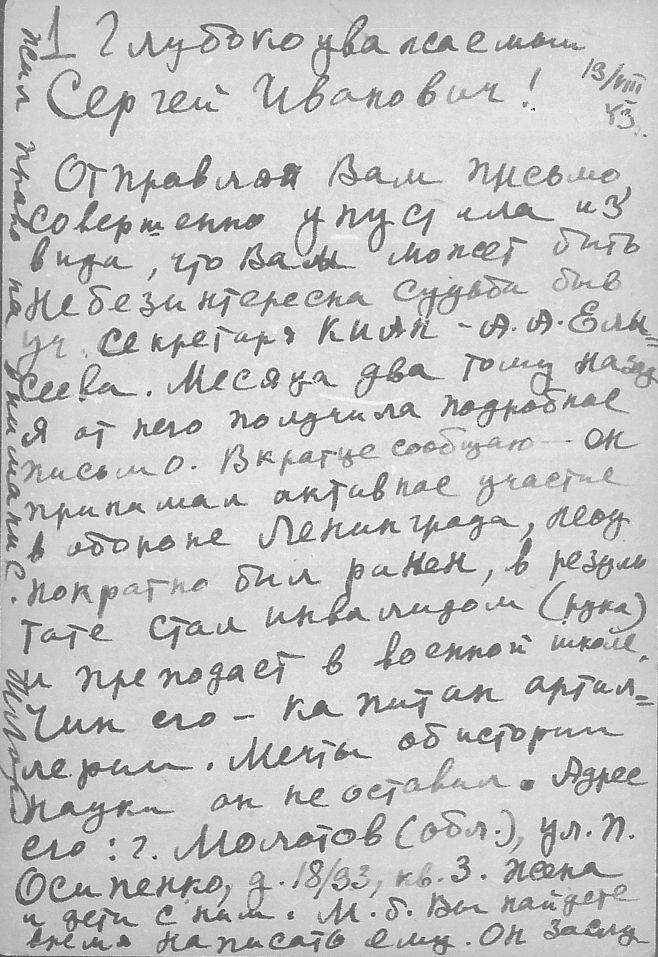 1 Глубокоуважаемый
Сергей Иванович!
13/VIII
43.
Отправляя Вам письмо
совершенно упустила из
вида, что Вам может быть
небезинтересна судьба быв
уч. секретаря КИАН - А.А. Ели=
сеева. Месяца два тому назад
я от него получила подробное
письмо. Вкратце сообщаю — он
принимал активное участие
в обороне Ленинграда, неод
нократно был ранен, в резуль
тате стал инвалидом (рука)
и преподает в военной школе.
Чин его - капитан артил=
лерии. Мечты об истории
науки он не оставил. Адрес
его: г. Молотов (обл.), ул. П.
Осипенко, д. 18/93, кв. 3. Жена
и дети с ним. М.б. Вы найдете
время написать ему. Он заслу
жил право на внимание.